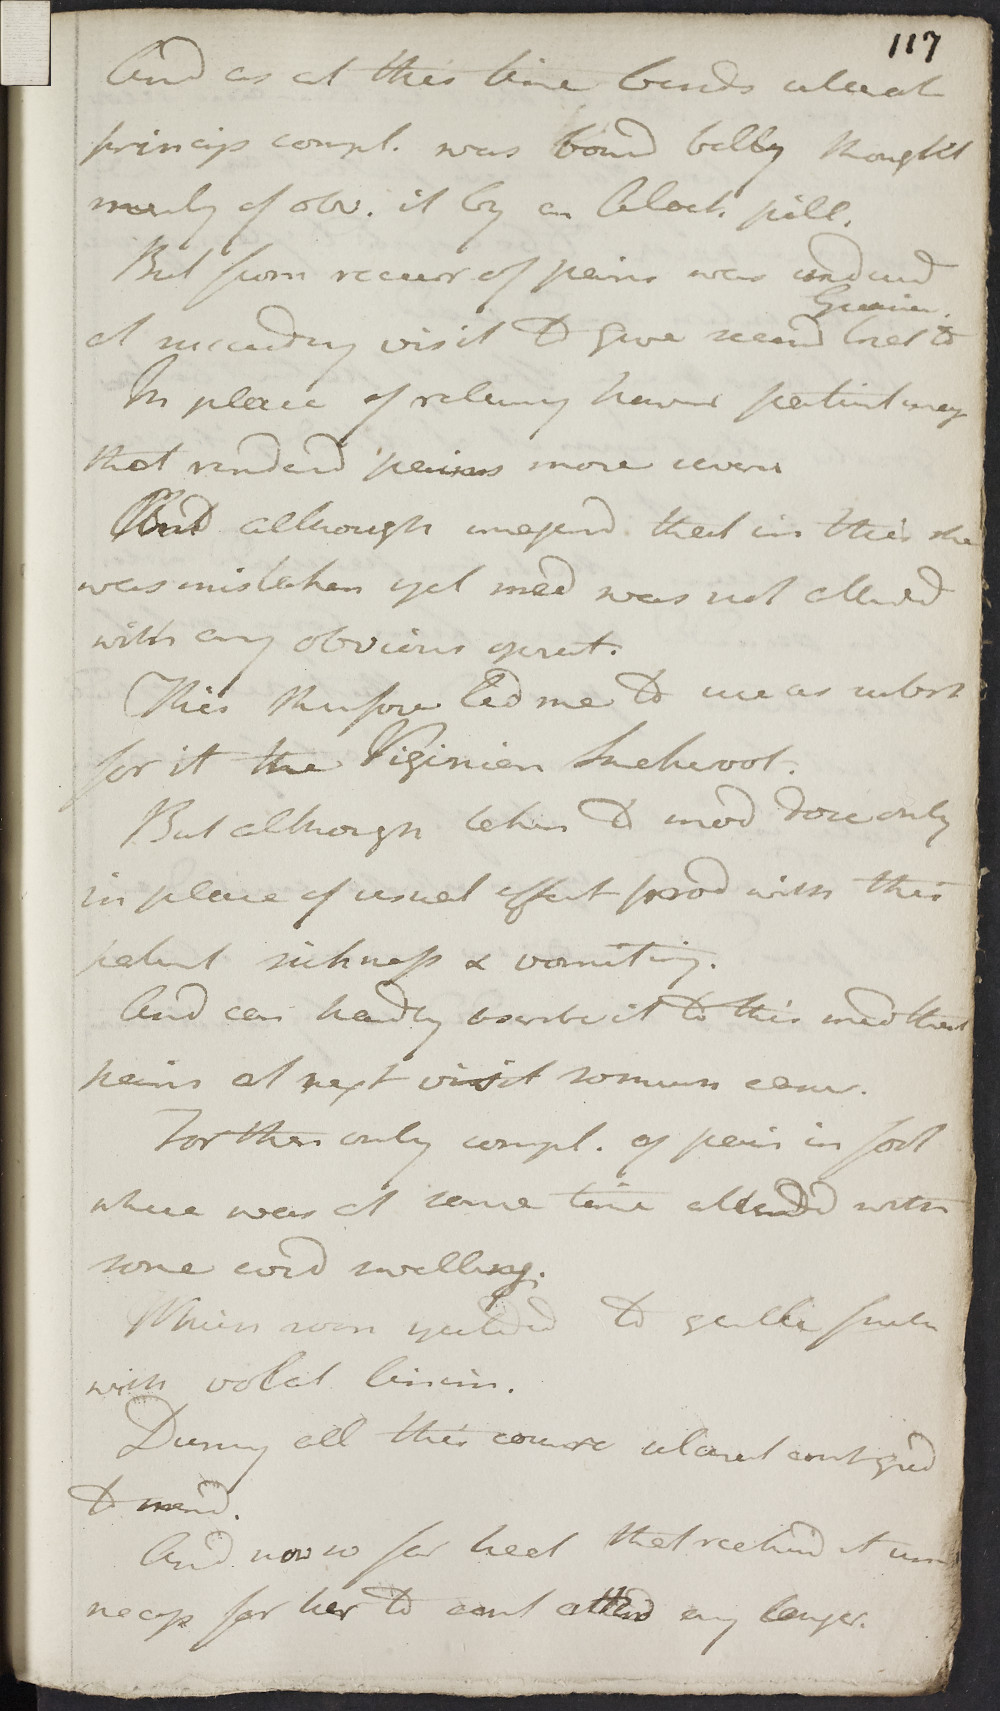 117
And as at this time besids ulcerat
princip compl. was bound belly thought
merely of obv. it by an Aloet. pill.
But from recurr of pains was induced
Guaiac.
at succeeding visit to give second
In place of relieving however patient imag
that renderd pains more severe
And although imagind that in this she
was mistaken yet med was not attend
with any obvious operat.
This therefore led me to use as subst
for it the Viginian Snekeroot.
But although taken to mod dose only
in place of usual effect prod with this
patient sickness & vomiting.
And can hardly ascribe it to this med that
pains at next visit somewh easier.
For then only compl. of pain in foot
where was at same time attended with
some cord swelling.
Which soon yielded to gentle frictn
with volat linim.
During all this course ulcerat cont gred
to mend.
And now so far heal that reckond it unn
necess for her to cont attend any longer.